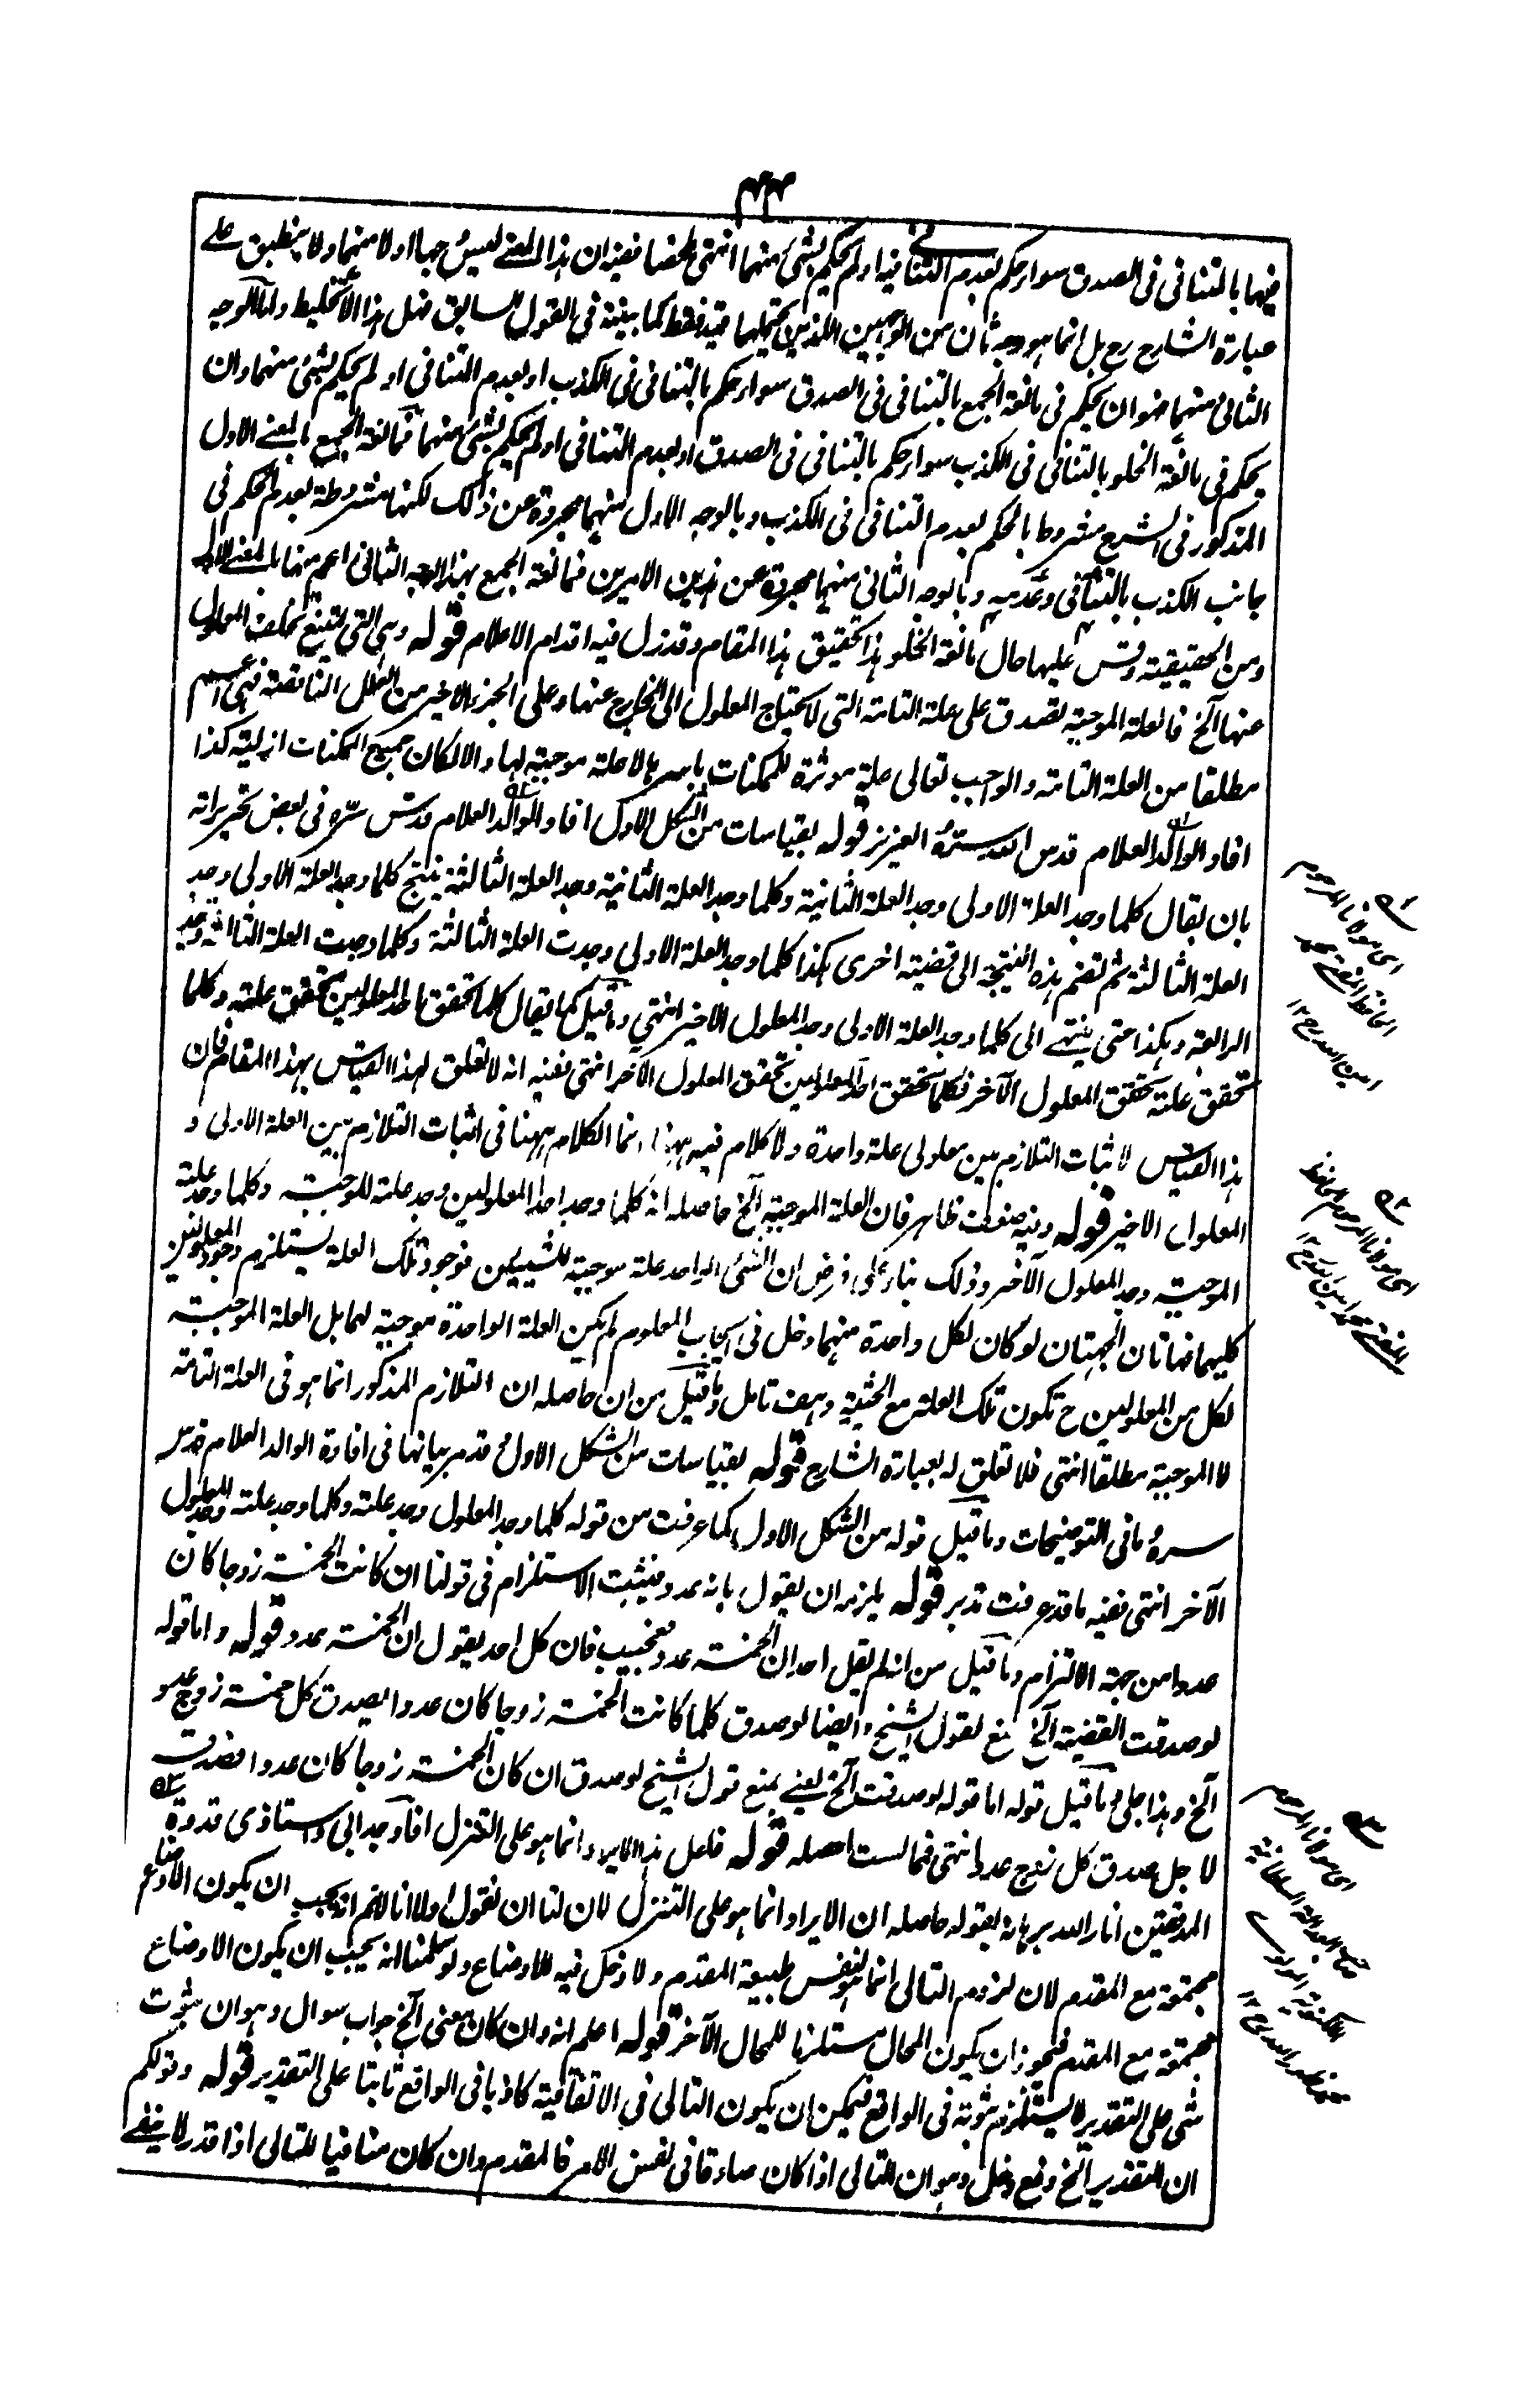 ۴۴
فيها بالتنافى فى الصدق سواء حكم بعدم التنافى فيه او لم يحكم بشئ منهما انتهى ملخصا ففيه ان هذا المعنى ليس جها اولا منهما ولا ينطبق على
عبارة الشارح رح بل انما هو وجه ثان من الوجهين اللذين يحتملهما قيد فقط كما بينته فى القول السابق فهل هذا الا تخليط واما الوجه
الثانى منهما فهو ان يحكم فى مانعة الجمع بالتنافى فى الصدق سواء حكم بالتنافى فى الكذب او بعدم التنافى او لم يحكم بشئ منهما وان
يحكم فى مانعة الخلو بالتنافى فى الكذب سواء حكم بالتنافى فى الصدق او بعدم التنافى او لم يحكم بشئ منهما فمانعة الجمع بالمعنى الاول
المذكور فى الشرح مشروط بالحكم بعدم التنافى فى الكذب وبالوجه الاول منهما مجردة عن ذلك لكنها مشروطة بعدم الحكم فى
جانب الكذب بالتنافى وعدمه وبالوجه الثانى منهما مجردة عن هذين الامرين فمانعة الجمع بهذا الوجه الثانى اعم منها بالمعنى الاول
ومن الحقيقية وقس عليها حال مانعة الخلو هذا تحقيق هذا المقام وقد زل فيه اقدام الاعلام قوله وهى التى يمتنع تخلف المعلول
عنها الخ فالعلة الموجبة تصدق على علة التامة التى لا يحتاج المعلول الى الخارج عنها وعلى الجزء الاخير من العلل الناقصة فهى اعم
مطلقا من العلة التامة والواجب تعالى علة موثرة للممكنات باسرها لا علة موجبة لها والا لكان جميع الممكنات ازلية كذا
افاد الوالد العلام قدس الله سره العزيز قوله بقياسات من الشكل الاول افاد الوالد العلام قدس سره فى بعض تحريراته
بان يقال كلما وجد العلة الاولى وجد العلة الثانية وكلما وجد العلة الثانية وجد العلة الثالثة ينتج كلما وجد العلة الاولى وجد
العلة الثالثة ثم تضم هذه النتيجة الى قضية اخرى هكذا كلما وجد العلة الاولى وجدت العلة الثالثة وكلما وجدت العلة الثالثة وجد
الرابعة وهكذا حتى ينتهى الى كلما وجد العلة الاولى وجد المعلول الاخير انتهى وما قيل كما يقال كلما تحقق احد المعلولين تحقق علته وكلما
تحقق علته تحقق المعلول الآخر فكلما تحقق احد المعلولين تحقق المعلول الآخر انتهى ففيه انه لا تعلق لهذا القياس بهذا المقام فان
هذا القياس لاثبات التلازم بين معلولى علة واحدة ولا كلام فيه ههنا انما الكلام ههنا فى اثبات التلازم بين العلة الاولى و
المعلول الاخير قوله وفيه ضعف ظاهر فان العلة الموجبة الخ حاصله انه كلما وجد احد المعلولين وجد علته الموجبة وكلما وجد علته
الموجبة وجد المعلول الآخر وذلك بناء على فرض ان الشئ الواحد علة موجبة للشيئين فوجود تلك العلة يستلزم وجود المعلولين
كليهما فهاتان الجهتان لو كان لكل واحدة منهما دخل فى ايجاب المعلوم لم يكن العلة الواحدة موجبة لهما بل العلة الموجبة
لكل من المعلولين ح تكون تلك العلة مع الحيثية وهف تامل وما قيل من ان حاصله ان التلازم المذكور انما هو فى العلة التامة
لا الموجبة مطلقا انتهى فلا تعلق له بعبارة الشارح قوله بقياسات من الشكل الاول قد مر بيانها فى افادة الوالد العلام قدس
سره ما فى التوضيحات وما قيل قوله من الشكل الاول كما عرفت من قوله كلما وجد المعلول وجد علته وكلما وجد علته وجد المعلول
الآخر انتهى ففيه ما قد عرفت تدبر قوله يلزمه ان يقول بانه عدد فيثبت الاستلزام فى قولنا ان كانت الخمسة زوجا كان
عددا من جهة الالتزام وما قيل من انه لم يقل احد ان الخمسة عدد فعجيب فان كل احد يقول ان الخمسة عدد قوله واما قوله
لو صدقت القضية الخ منع لقول الشيخ وايضا لو صدق كلما كانت الخمسة زوجا كان عددا يصدق كل خمسة زوج عدد
الخ وهذا جلى وما قيل قوله اما قوله لو صدقت الخ يعنى يمنع قول الشيخ لو صدق ان كان الخمسة زوجا كان عددا فصدقه
لاجل صدق كل زوج عدد انتهى فما لست احصله قوله فلعل هذا الايراد انما هو على التنزل افاد جد ابى واستاذى قدوة
المدققين انار الله برهانه بقوله حاصله ان الايراد انما هو على التنزل لان لنا ان نقول اولا انا لا نم انه يجب ان يكون الاوضاع
مجتمعة مع المقدم لان لزوم التالى انما هو لنفس طبيعة المقدم ولا دخل فيه للاوضاع ولو سلمنا انه يجب ان يكون الاوضاع
مجتمعة مع المقدم فيجوز ان يكون المحال مستلزما للمحال الآخر قوله اعلم انه وان كان معنى الخ جواب سوال وهو ان ثبوت
شئ على التقدير لا يستلزم ثبوته فى الواقع فيمكن ان يكون التالى فى الاتفاقية كاذبا فى الواقع ثابتا على التقدير قوله وقولكم
ان التقدير الخ دفع دخل وهو ان التالى اذا كان صادقا فى نفس الامر فالمقدم وان كان منافيا للتالى اذا قدر لا ينفى
۱
اى مولانا المرحوم
الحافظ المفتى محمد
امين الله رح ۱۲
۲
اى مولانا المرحوم الحافظ
المفتى محمد امين الله رح ۱۲
۳
اى مولانا المرحوم
محمد ظهور الله رح ۱۲